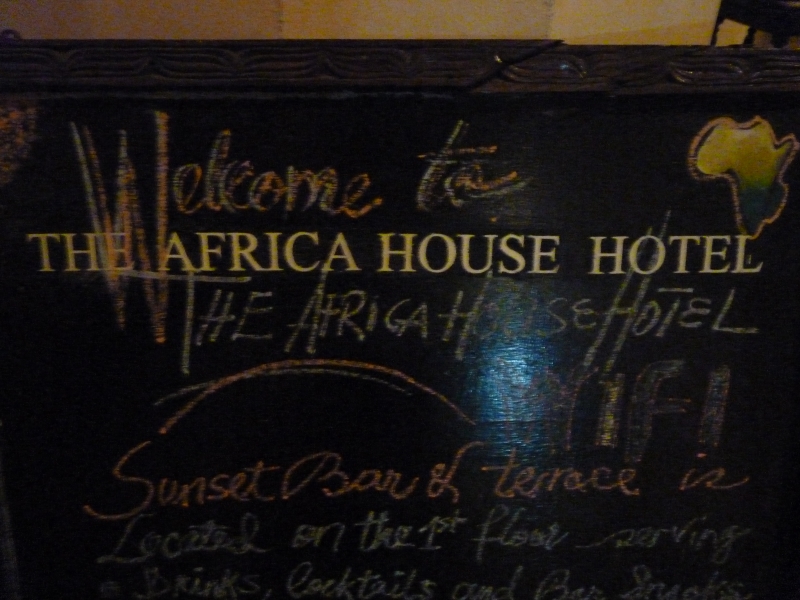 Welcome to
THE AFRICA HOUSE HOTEL
THE AFRICA HOUSE HOTEL
WIFI
Sunset Bar & terrace is
Located on the 1st floor serving
Drinks, Cocktails and Bar Snacks